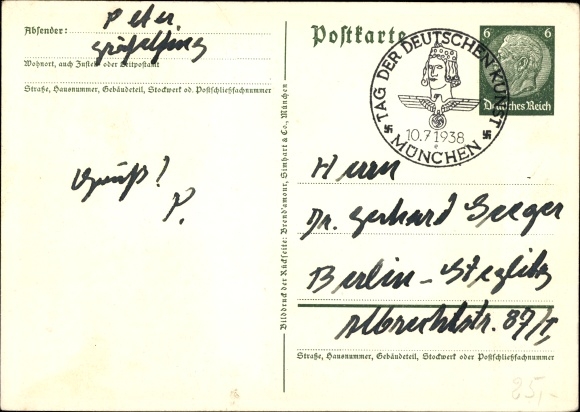 Absender:
Peter
Gräfelfing
Wohnort, auch Zustell- oder Leitpostamt
Straße, Hausnummer, Gebäudeteil, Stockwerk od. Postschließfachnummer
Gruß!
P.
Bilddruck der Rückseite: Brend'amour, Simhart & Co., München
Postkarte
TAG DER DEUTSCHEN KUNST
10.7.1938
MÜNCHEN
6 6
Deutsches Reich
Herrn
Dr. Gerhard Geeger
Berlin-Steglitz
Albrechtstr. 87/I
Straße, Hausnummer, Gebäudeteil, Stockwerk oder Postschließfachnummer
25,-